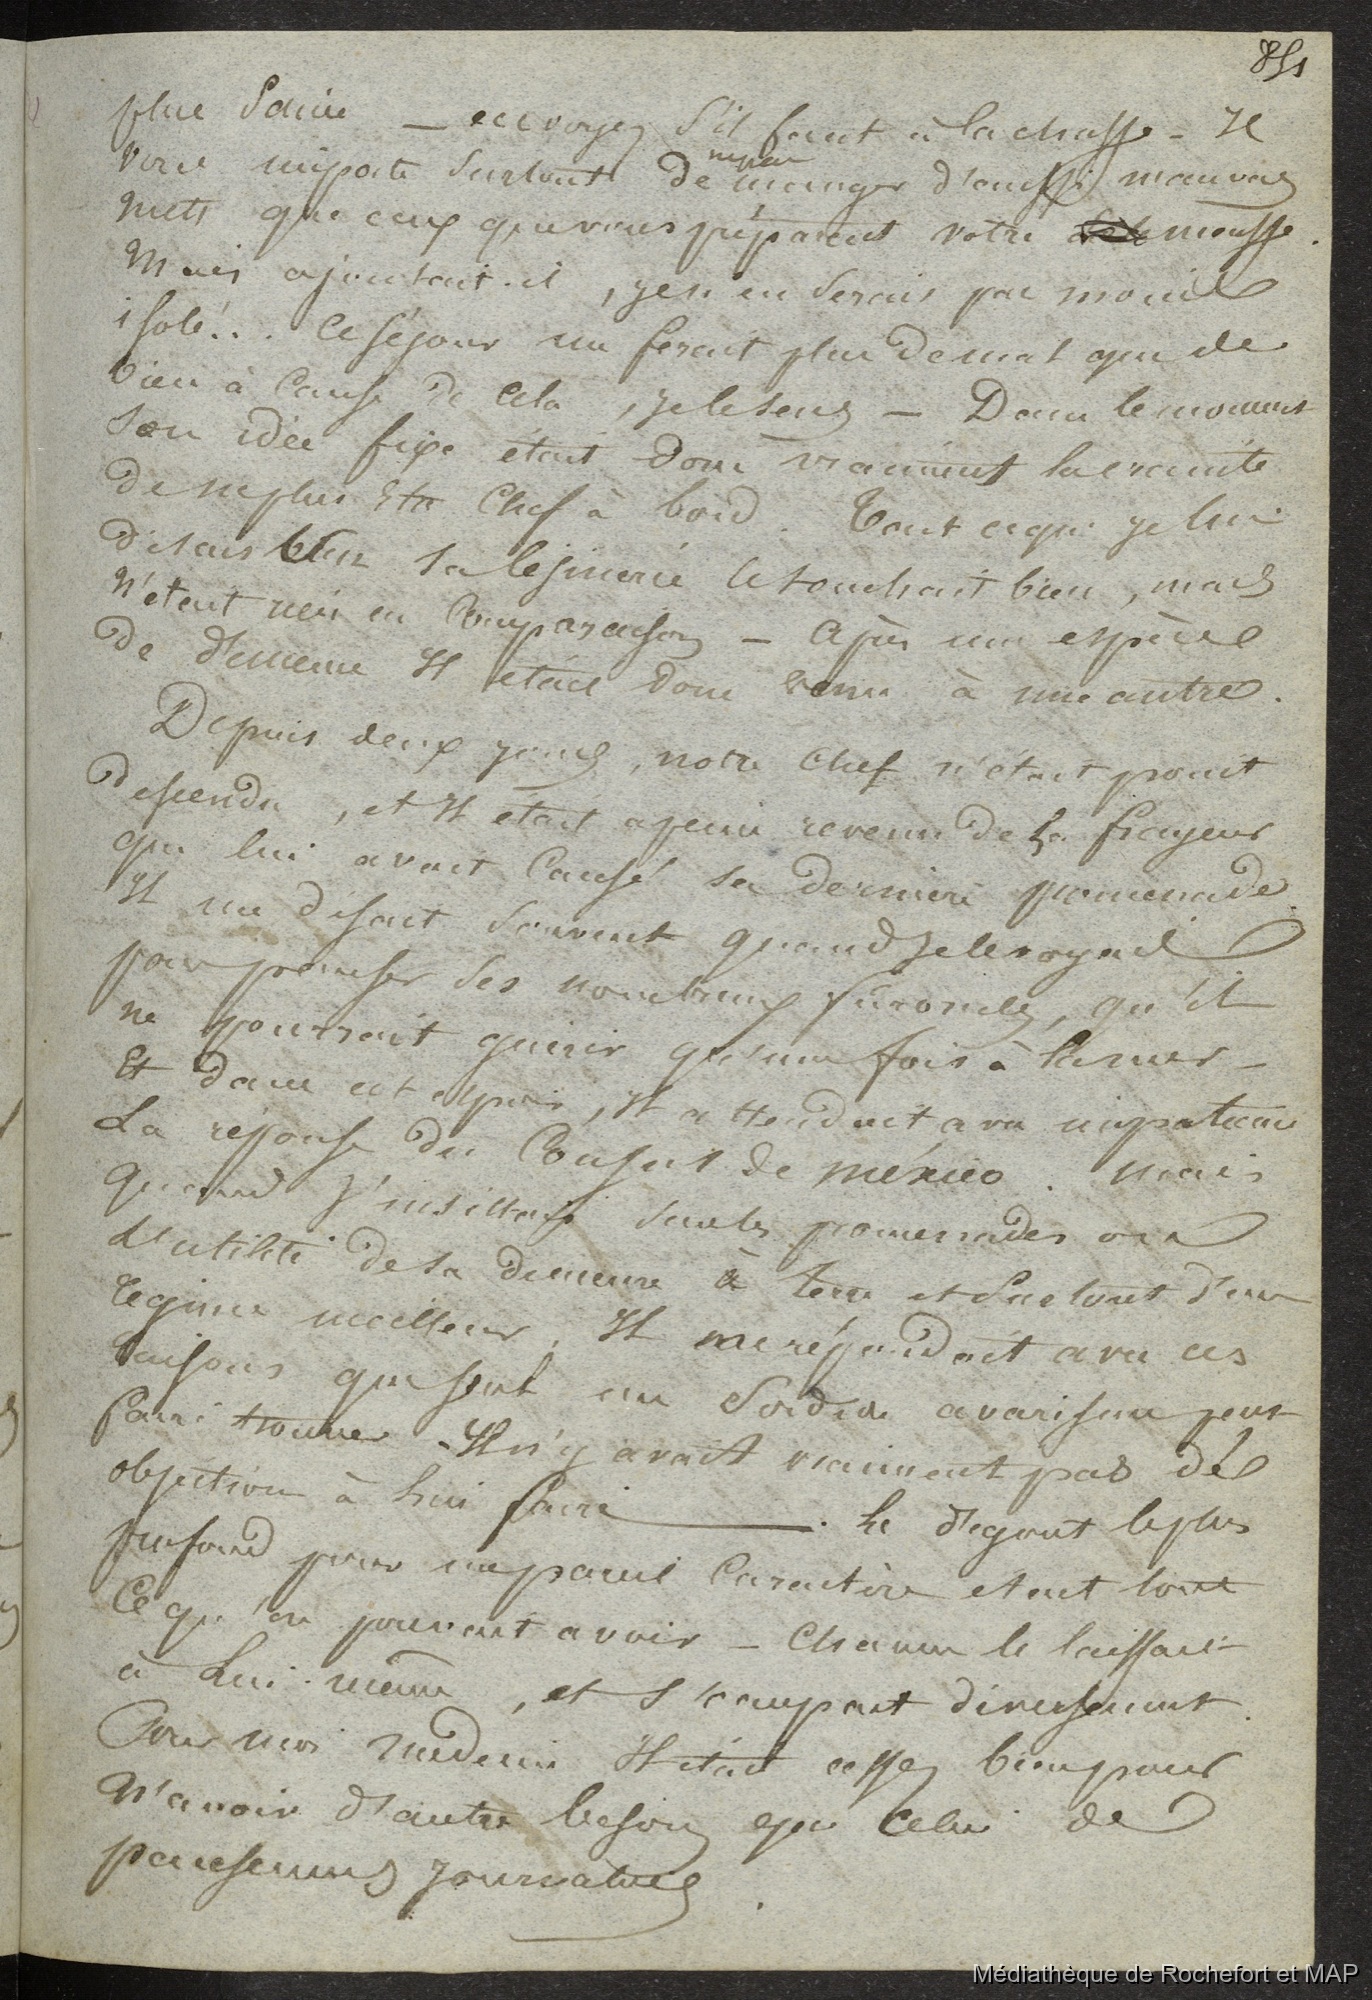 851
plus saine — envoyez s'il faut à la chasse - Il
vous importe surtout de ne pas manger d'aussi mauvais
mets que ceux que vous préparent votre mousse.
Mais ajoutait-il, je n'en serais pas moins
isolé... Ce séjour me ferait plus de mal que de
bien à cause de cela, je le sens — Dans le moment
son idée fixe était donc vraiment la crainte
de n'être plus Chef à bord. Tout ce que je lui
disais sur sa lésinerie le touchait bien, mais
n'était rien en comparaison — Après une espèce
de démence Il était donc venu à une autre.
Depuis deux jours, notre Chef n'était point
descendu, et Il était à peine revenu de sa frayeur
que lui avait causé sa dernière promenade.
Il me disait souvent quand je le voyais
pour panser ses nombreux furoncles, qu'il
ne pourrait guérir qu'une fois à la mer -
Et dans cet espoir, Il attendait avec impatience
La réponse du Consul de México. Mais
quand j'insistais sur les promenades ou
L'utilité de sa demeure à terre et surtout d'un
régime meilleur, Il me répondait avec ces
raisons que seul un sordide avarisme peut
faire trouver - Il n'y avait vraiment pas de
objection à lui faire. Le dégout le plus
profond pour un pareil Caractère etait tout
Ce qu'on pouvait avoir - Chacun le laissait
à Lui-même, et s'occupait diversement.
Pour moi médecin Il était assez bien pour
N'avoir d'autre besoin que Celui de
pansements journaliers.
Médiathèque de Rochefort et MAP